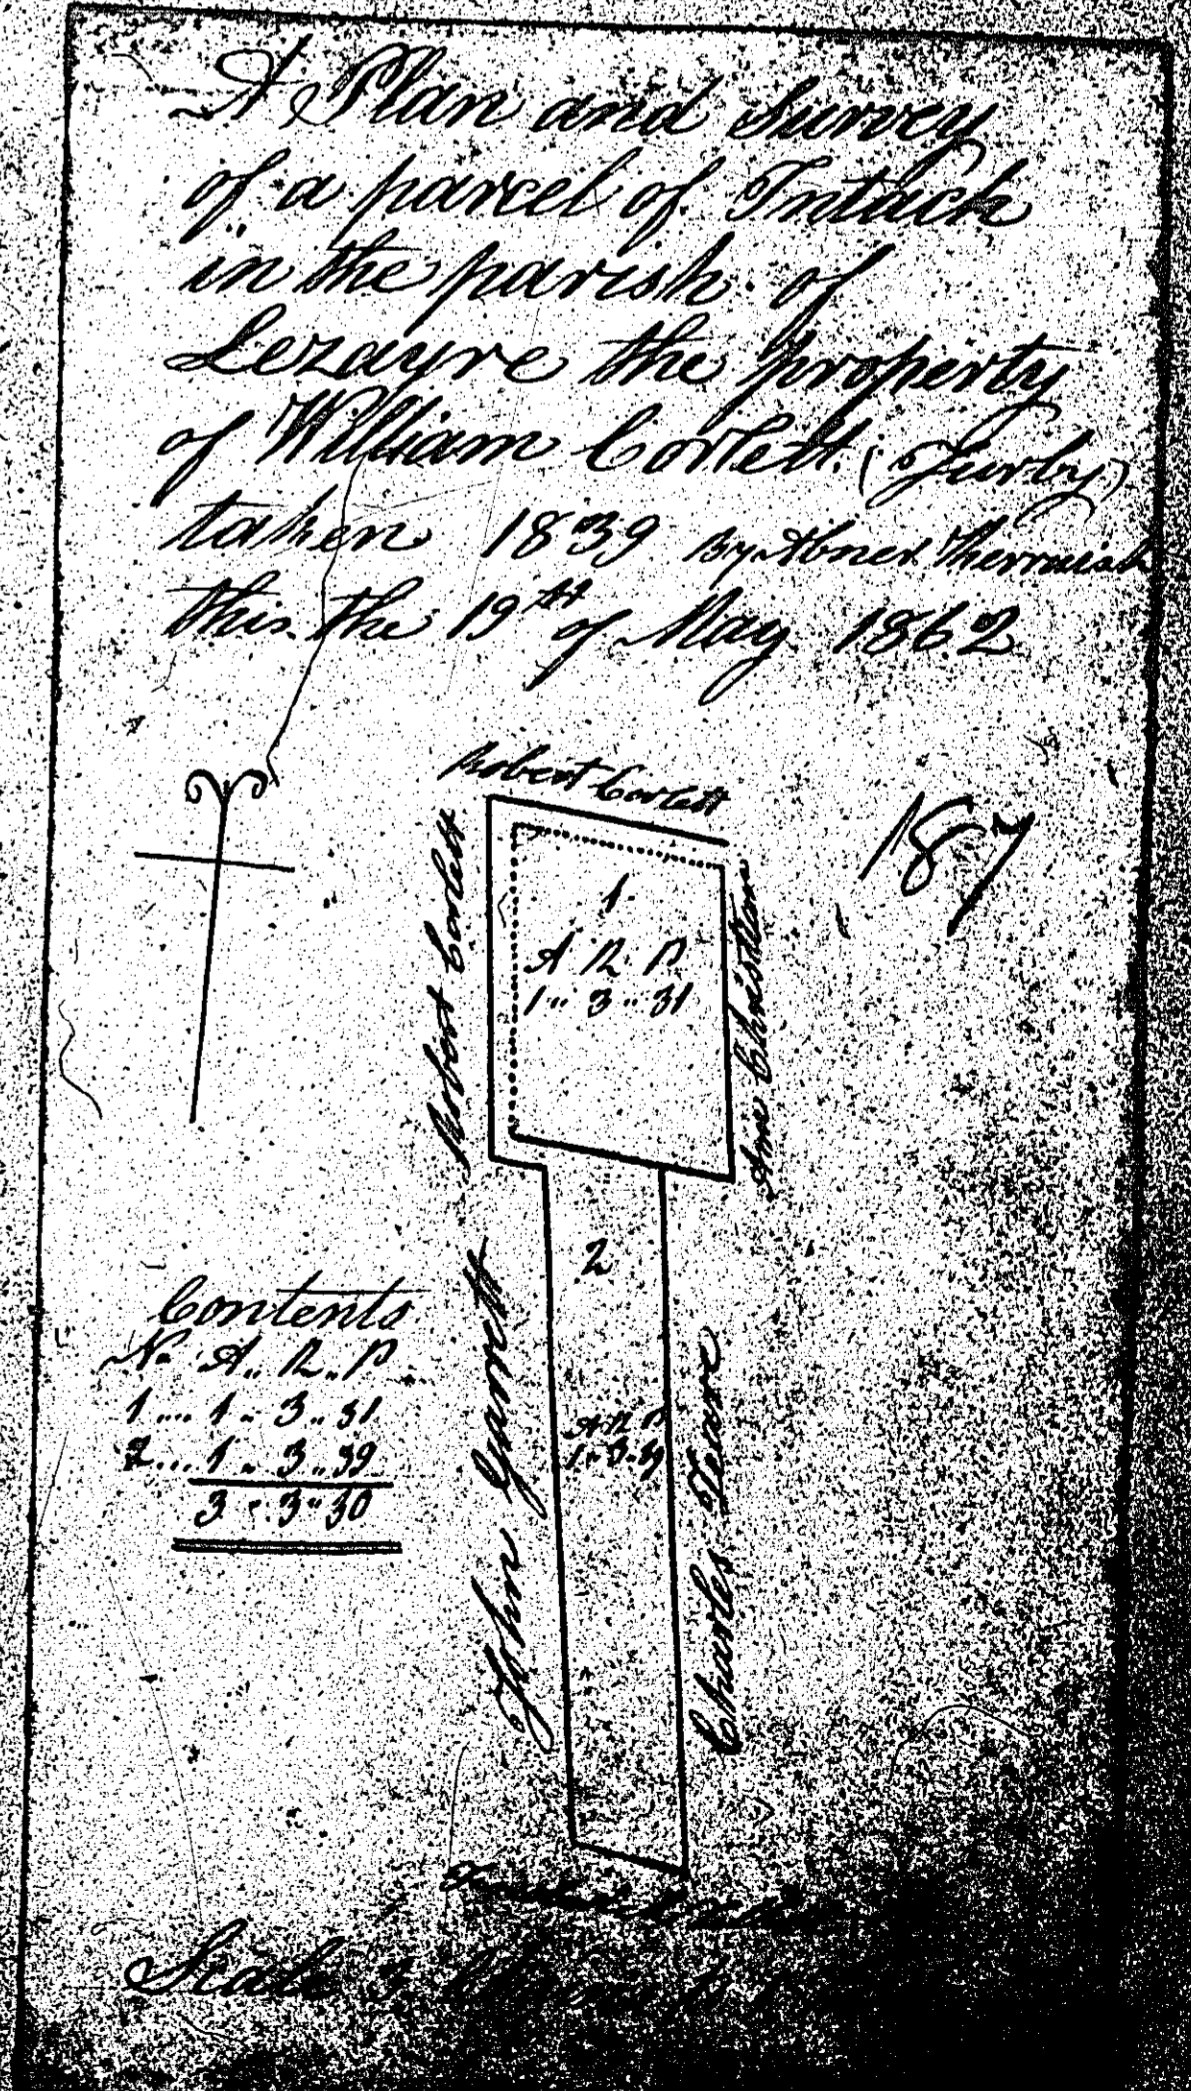 A Plan and Survey
of a parcel of Intack
in the parish of
Lezayre the property
of William Corlett (Jurby)
taken 1839 By Abner
this the 19th of May 1862
187
Robert Corlett
Robert Corlett
1
A R P
1 .. 3 .. 31
Ann Christian
2
A R P
1 .. 3 .. 39
John Garrett
Charles Teare
Contents
No A .. R .. P
1 .... 1 .. 3 .. 31
2 .... 1 .. 3 .. 39
3 .. 3 .. 30
Scale 3 Chains